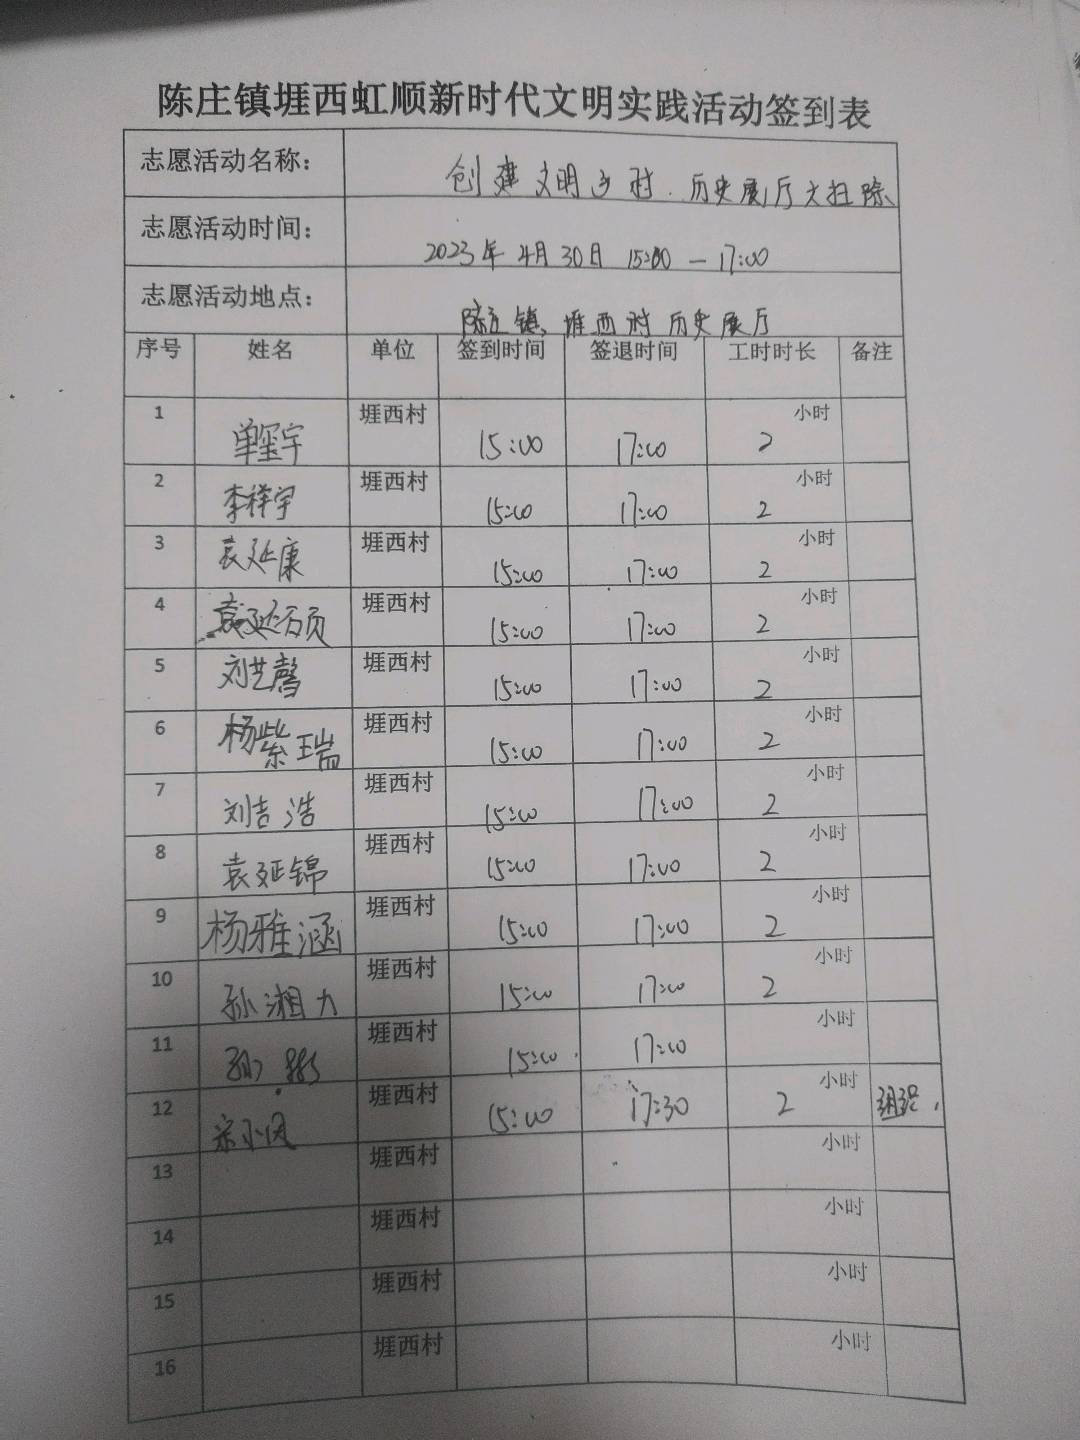 陈庄镇堐西虹顺新时代文明实践活动签到表
志愿活动名称： 创建文明乡村.历史展厅大扫除
志愿活动时间： 2023年4月30日 15:00—17:00
志愿活动地点： 陈庄镇、堐西村历史展厅
序号 姓名 单位 签到时间 签退时间 工时时长 备注
1 单玺宇 堐西村 15:00 17:00 2 小时
2 李祥宇 堐西村 15:00 17:00 2 小时
3 袁延康 堐西村 15:00 17:00 2 小时
4 袁延硕 堐西村 15:00 17:00 2 小时
5 刘艺馨 堐西村 15:00 17:00 2 小时
6 杨紫瑞 堐西村 15:00 17:00 2 小时
7 刘吉浩 堐西村 15:00 17:00 2 小时
8 袁延锦 堐西村 15:00 17:00 2 小时
9 杨雅涵 堐西村 15:00 17:00 2 小时
10 孙湘力 堐西村 15:00 17:00 2 小时
11 堐西村 15:00 17:00 小时
12 堐西村 15:00 17:30 2 小时 组织
13 堐西村 小时
14 堐西村 小时
15 堐西村 小时
16 堐西村 小时